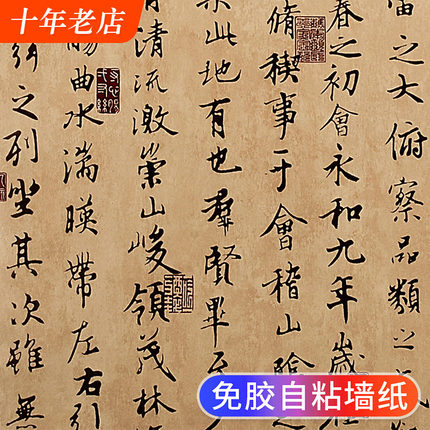 十年老店
之大俯察品類之
春之初會永和九年歲在
脩稧事于會稽山陰
此地有也羣賢畢至
清流激崇山峻領茂林
觴曲水湍暎帶左右引
之列坐其次雖無
免胶自粘墙纸